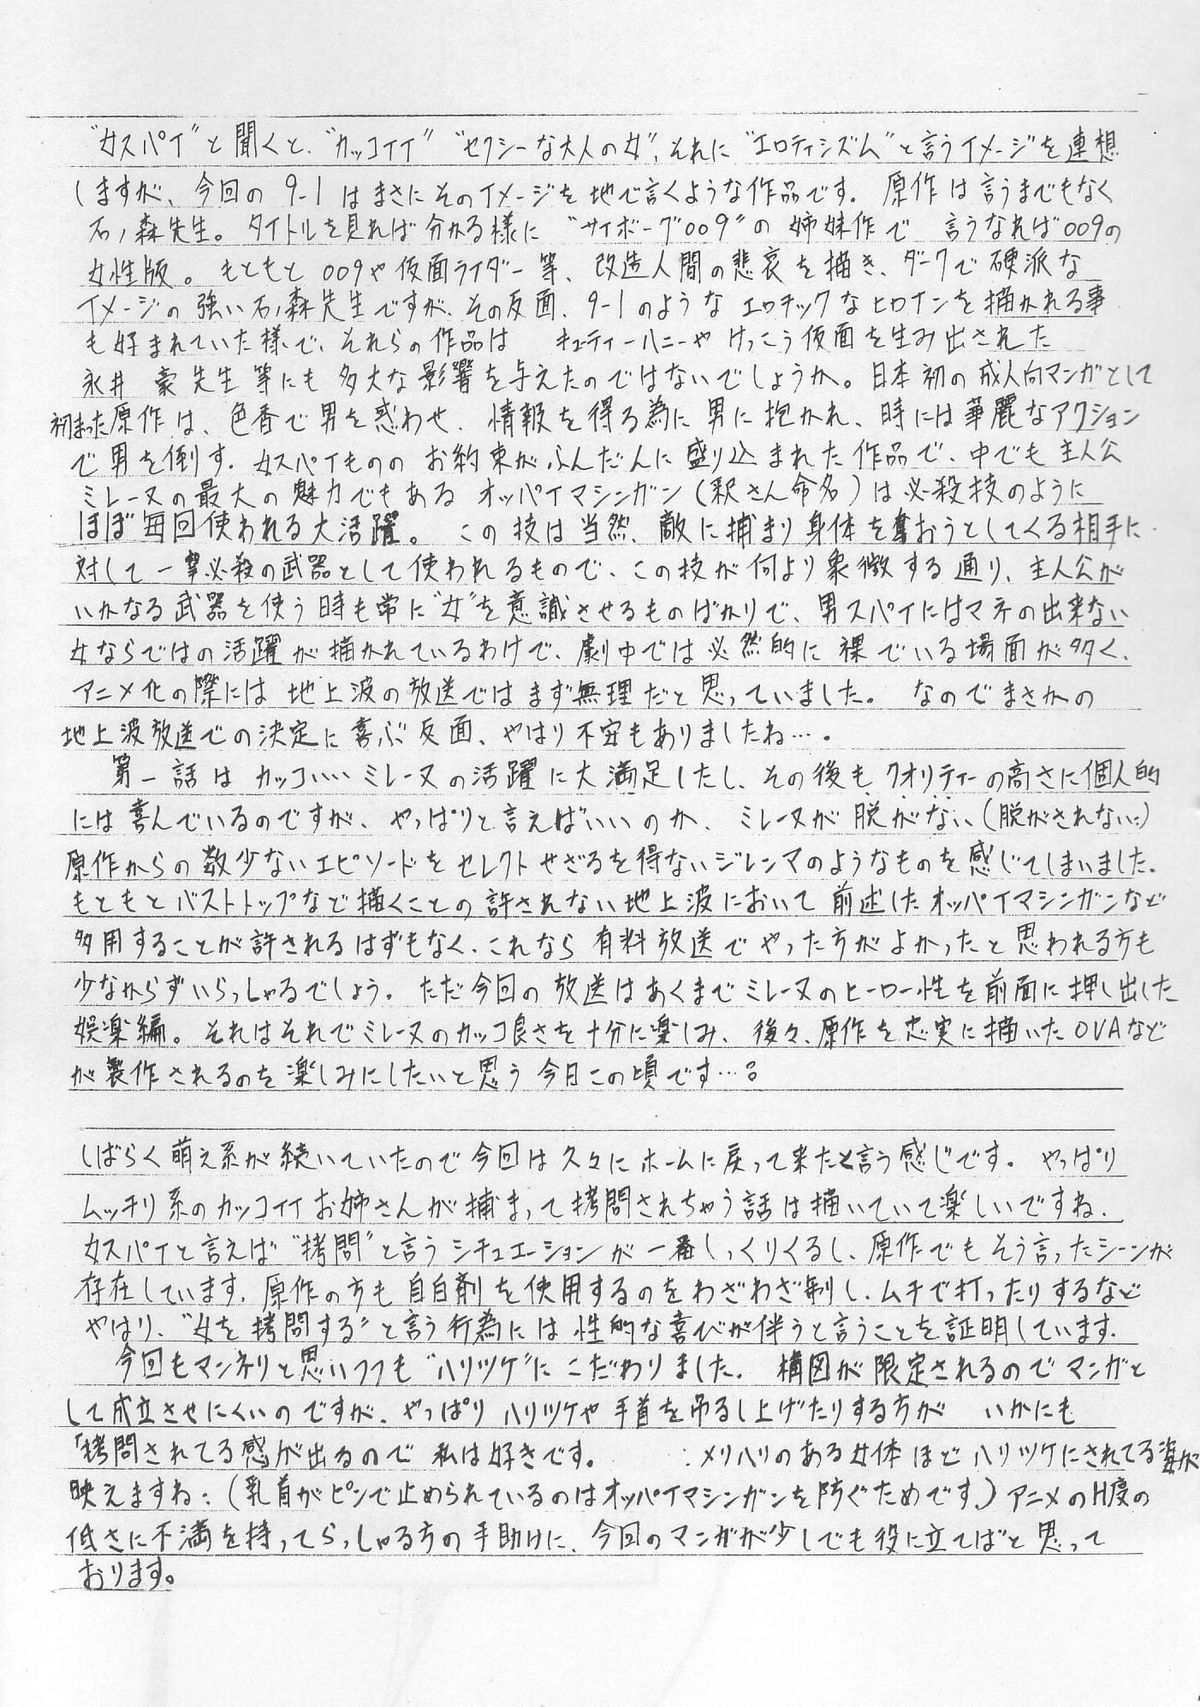 "女スパイ"と聞くと、"カッコイイ""セクシーな大人の女"、それに"エロティシズム"と言うイメージを連想
しますが、今回の9-1はまさにそのイメージを地で言くような作品です。原作は言うまでもなく
石ノ森先生。タイトルを見れば分かる様に"サイボーグ009"の姉妹作で 言うなれば009の
女性版。もともと009や仮面ライダー等、改造人間の悲哀を描き、ダークで硬派な
イメージの強い石ノ森先生ですが、その反面、9-1のようなエロチックなヒロインを描かれる事
も好まれていた様で、それらの作品は キューティーハニーやけっこう仮面を生み出された
永井 豪先生等にも多大な影響を与えたのではないでしょうか。日本初の成人向マンガとして
初まった原作は、色香で男を惑わせ、情報を得る為に男に抱かれ、時には華麗なアクション
で男を倒す、女スパイもののお約束がふんだんに盛り込まれた作品で、中でも主人公
ミレーヌの最大の魅力でもあるオッパイマシンガン(釈さん命名)は必殺技のように
ほぼ毎回使われる大活躍。この技は当然、敵に捕まり身体を奪おうとしてくる相手に
対して一撃必殺の武器として使われるもので、この技が何より象徴する通り、主人公が
いかなる武器を使う時も常に"女"を意識させるものばかりで、男スパイにはマネの出来ない
女ならではの活躍が描かれているわけで、劇中では必然的に裸でいる場面が多く、
アニメ化の際には地上波の放送ではまず無理だと思っていました。なのでまさかの
地上波放送での決定に喜ぶ反面、やはり不安もありましたね…。
第一話はカッコいいミレーヌの活躍に大満足したし、その後もクオリティーの高さに個人的
には喜んでいるのですが、やっぱりと言えばいいのか、ミレーヌが脱がない(脱がされない;)
原作からの数少ないエピソードをセレクトせざるを得ないジレンマのようなものを感じてしまいました。
もともとバストトップなど描くことの許されない地上波において前述したオッパイマシンガンなど
多用することが許されるはずもなく、これなら有料放送でやった方がよかったと思われる方も
少なからずいらっしゃるでしょう。ただ今回の放送はあくまでミレーヌのヒーロー性を前面に押し出した
娯楽編。それはそれでミレーヌのカッコ良さを十分に楽しみ、後々、原作を忠実に描いたOVAなど
が製作されるのを楽しみにしたいと思う今日この頃です…。
しばらく萌え系が続いていたので今回は久々にホームに戻って来たと言う感じです。やっぱり
ムッチリ系のカッコイイお姉さんが捕まって拷問されちゃう話は描いていて楽しいですね。
女スパイと言えば"拷問"と言うシチュエーションが一番しっくりくるし、原作でもそう言ったシーンが
存在しています。原作の方も自白剤を使用するのをわざわざ制し、ムチで打ったりするなど
やはり、"女を拷問する"と言う行為には性的な喜びが伴うと言うことを証明しています。
今回もマンネリと思いつつも"ハリツケ"にこだわりました。構図が限定されるのでマンガと
して成立させにくいのですが、やっぱりハリツケや手首を吊るし上げたりする方が いかにも
「拷問されてる感が出るので私は好きです。 メリハリのある女体ほどハリツケにされてる姿が
映えますね;(乳首がピンで止められているのはオッパイマシンガンを防ぐためです)アニメのH度の
低さに不満を持ってらっしゃる方の手助けに、今回のマンガが少しでも役に立てばと思って
おります。